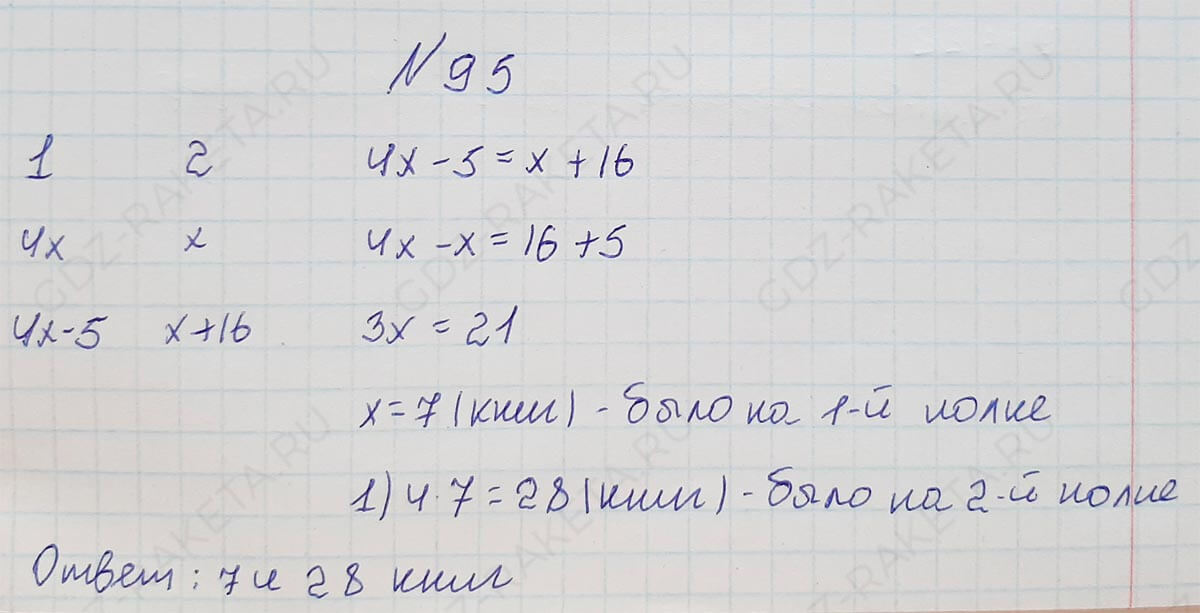 № 95
1 2 4x - 5 = x + 16
4x x 4x - x = 16 + 5
4x-5 x+16 3x = 21
x = 7 (книг) - было на 1-й полке
1) 4 · 7 = 28 (книг) - было на 2-й полке
Ответ: 7 и 28 книг
GDZ-RAKETA.RU